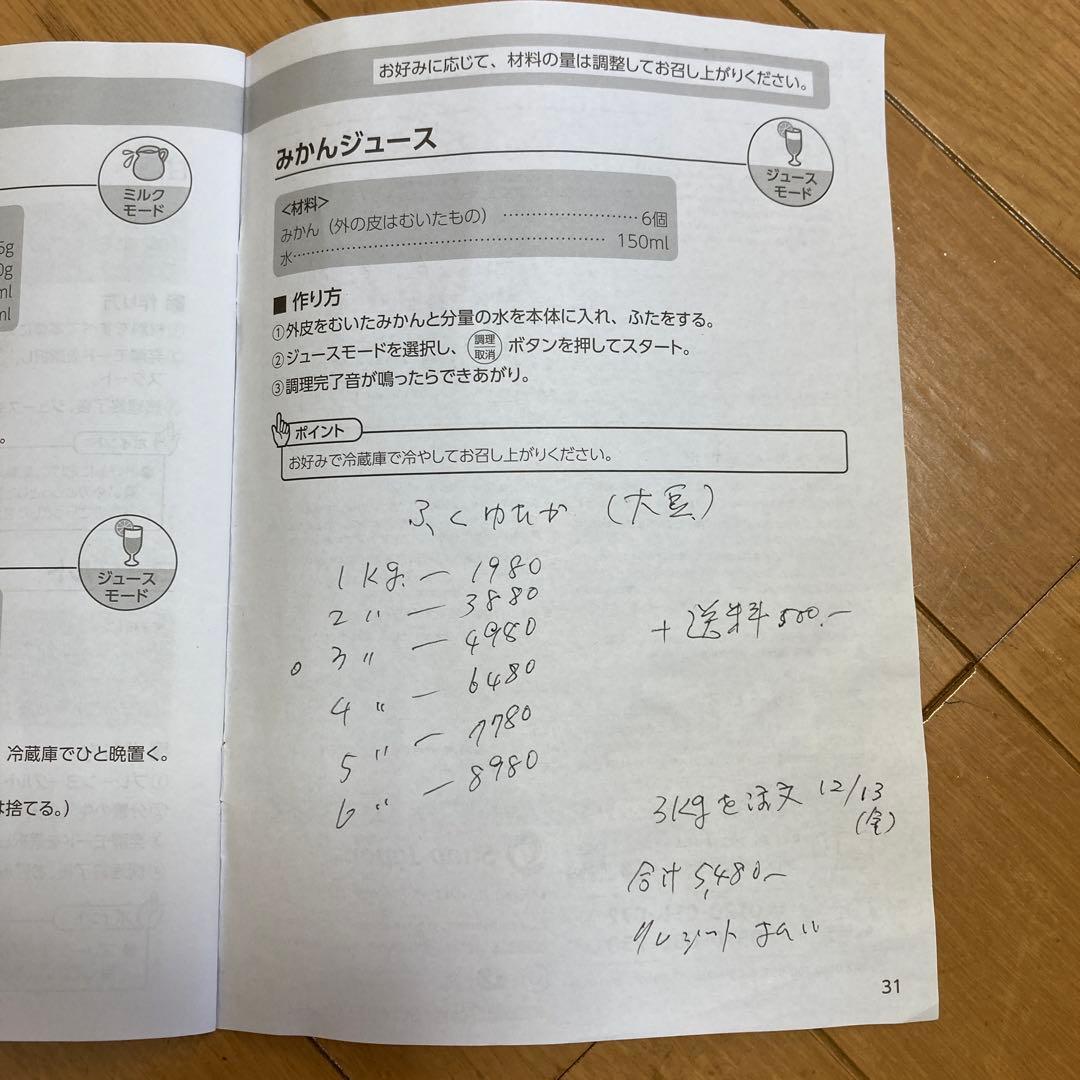 ミルク
モード
5g
0g
ml
ml
。
ジュース
モード
冷蔵庫でひと晩置く。
は捨てる。)
お好みに応じて、材料の量は調整してお召し上がりください。
みかんジュース
ジュース
モード
<材料>
みかん（外の皮はむいたもの） ………………… 6個
水………………………………… 150ml
■ 作り方
①外皮をむいたみかんと分量の水を本体に入れ、ふたをする。
②ジュースモードを選択し、 調理 取消 ボタンを押してスタート。
③調理完了音が鳴ったらできあがり。
ポイント
お好みで冷蔵庫で冷やしてお召し上がりください。
ふくゆたか （大豆）
1 Kg. ― 1980
2 〃 ― 3880
○ 3 〃 ― 4980
4 〃 ― 6480
5 〃 ― 7780
6 〃 ― 8980
+ 送料 500.―
3Kgを注文 12/13
(金)
合計 5,480―
クレジット 払い
31